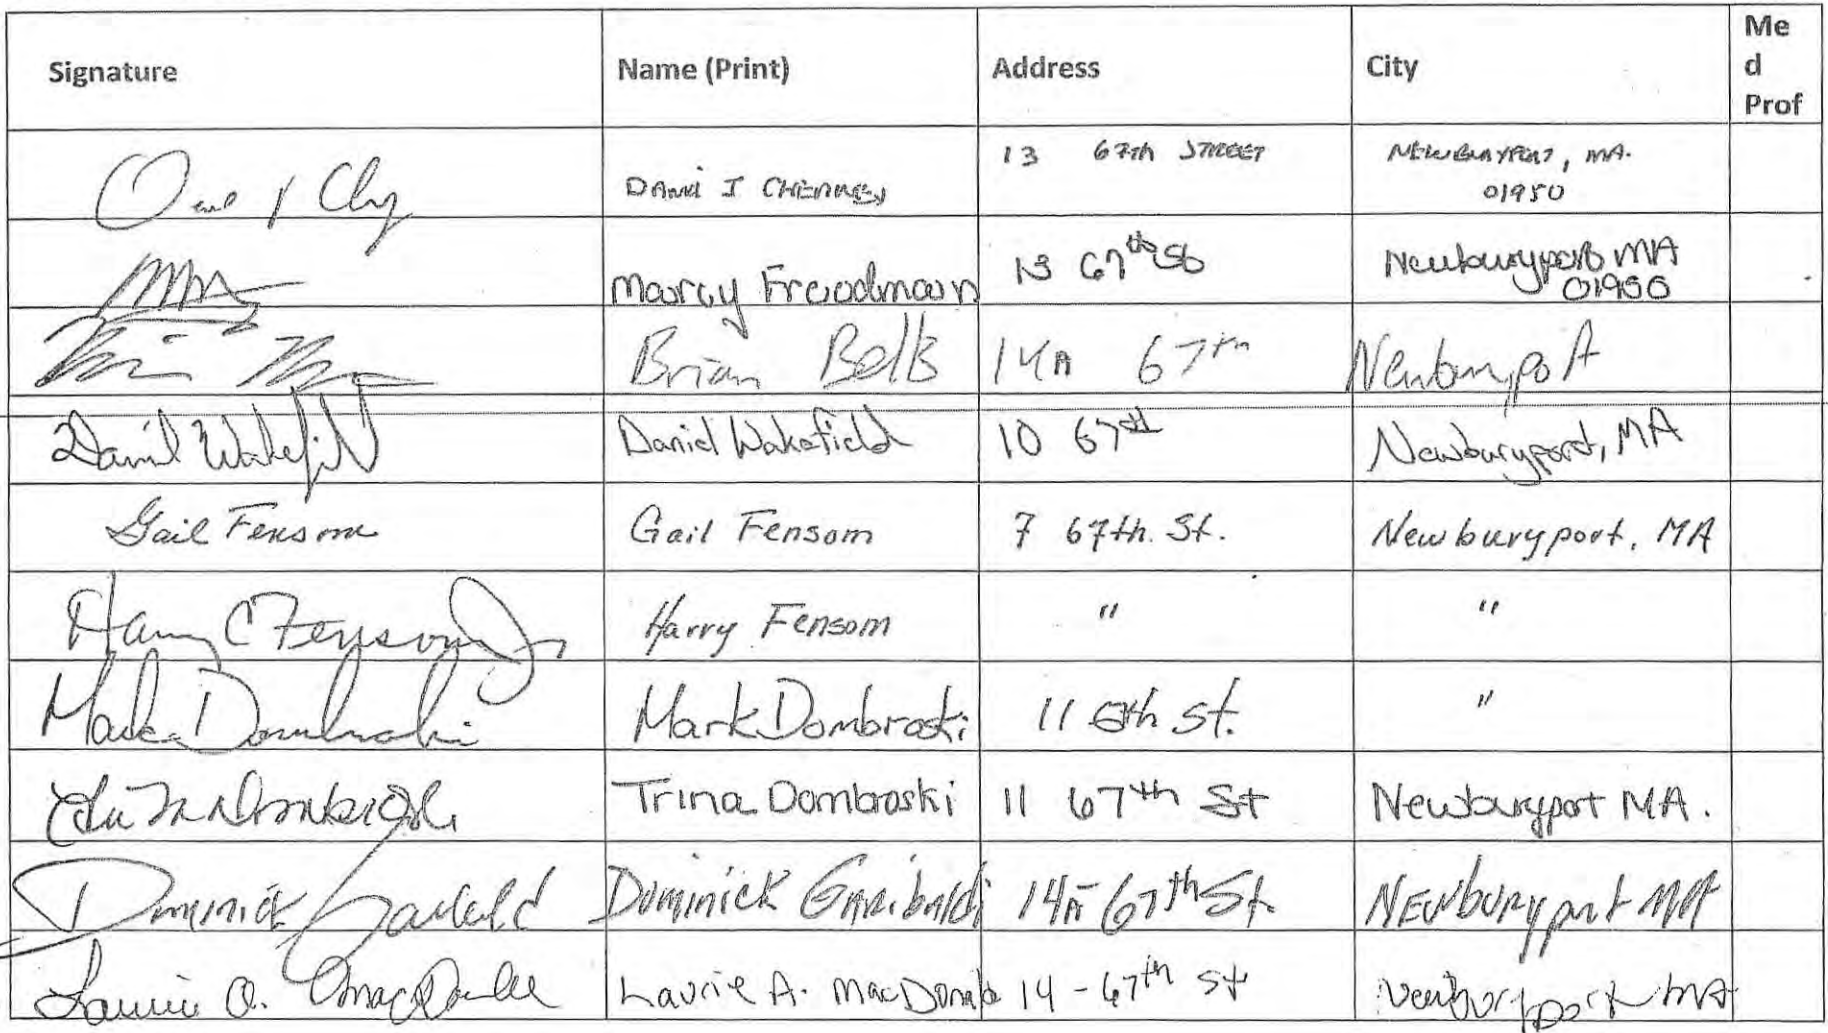 Signature Name (Print) Address City Me
d
Prof
13 67th STREET NEWBURYPORT, MA.
I CHEARNEY 01950
Marcy Freedman 13 67th St Newburyport MA
01950
Brian Belb 14A 67th Newburyport
Daniel Wakefield Daniel Wakefield 10 67th Newburyport, MA
Gail Fensom Gail Fensom 7 67th. St. Newburyport, MA
Harry C Fensom Jr Harry Fensom " "
Mark Dombroski Mark Dombroski 11 67th St. "
Trina Dombroski 11 67th St Newburyport MA.
Dominick Garibaldi Dominick Garibaldi 14A-67th St. Newburyport MA
Laurie A. MacDonald Laurie A. MacDonald 14-67th St Newburyport MA